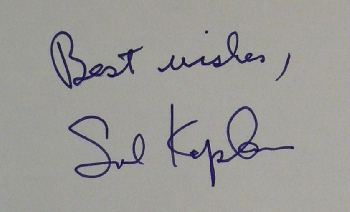 Best wishes,
Sol Kaplan